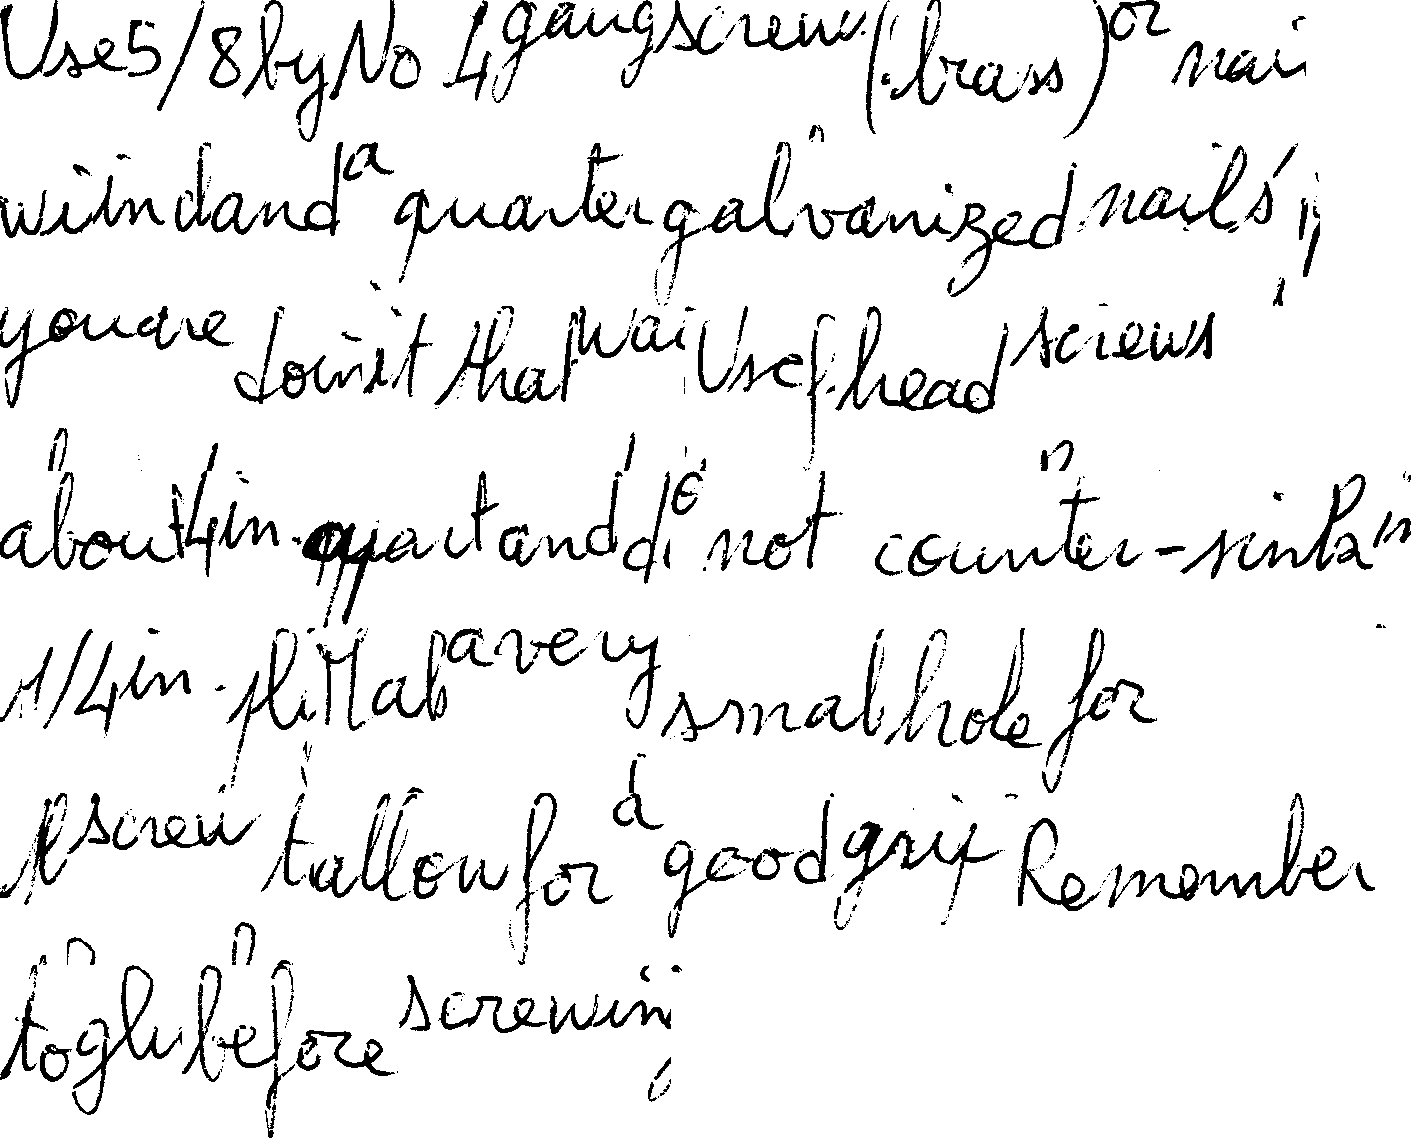 Use 5/8 by No 4 gang screws (brass) or nai
wi in d and a quarter galvanized nails' if
you are doin it that wai Use f. head screws
about 4 in. quart and d not counter-sink in
1/4 in. pl Mab a very small hole for
screw t allow for a good grip Remember
to glu before screwing